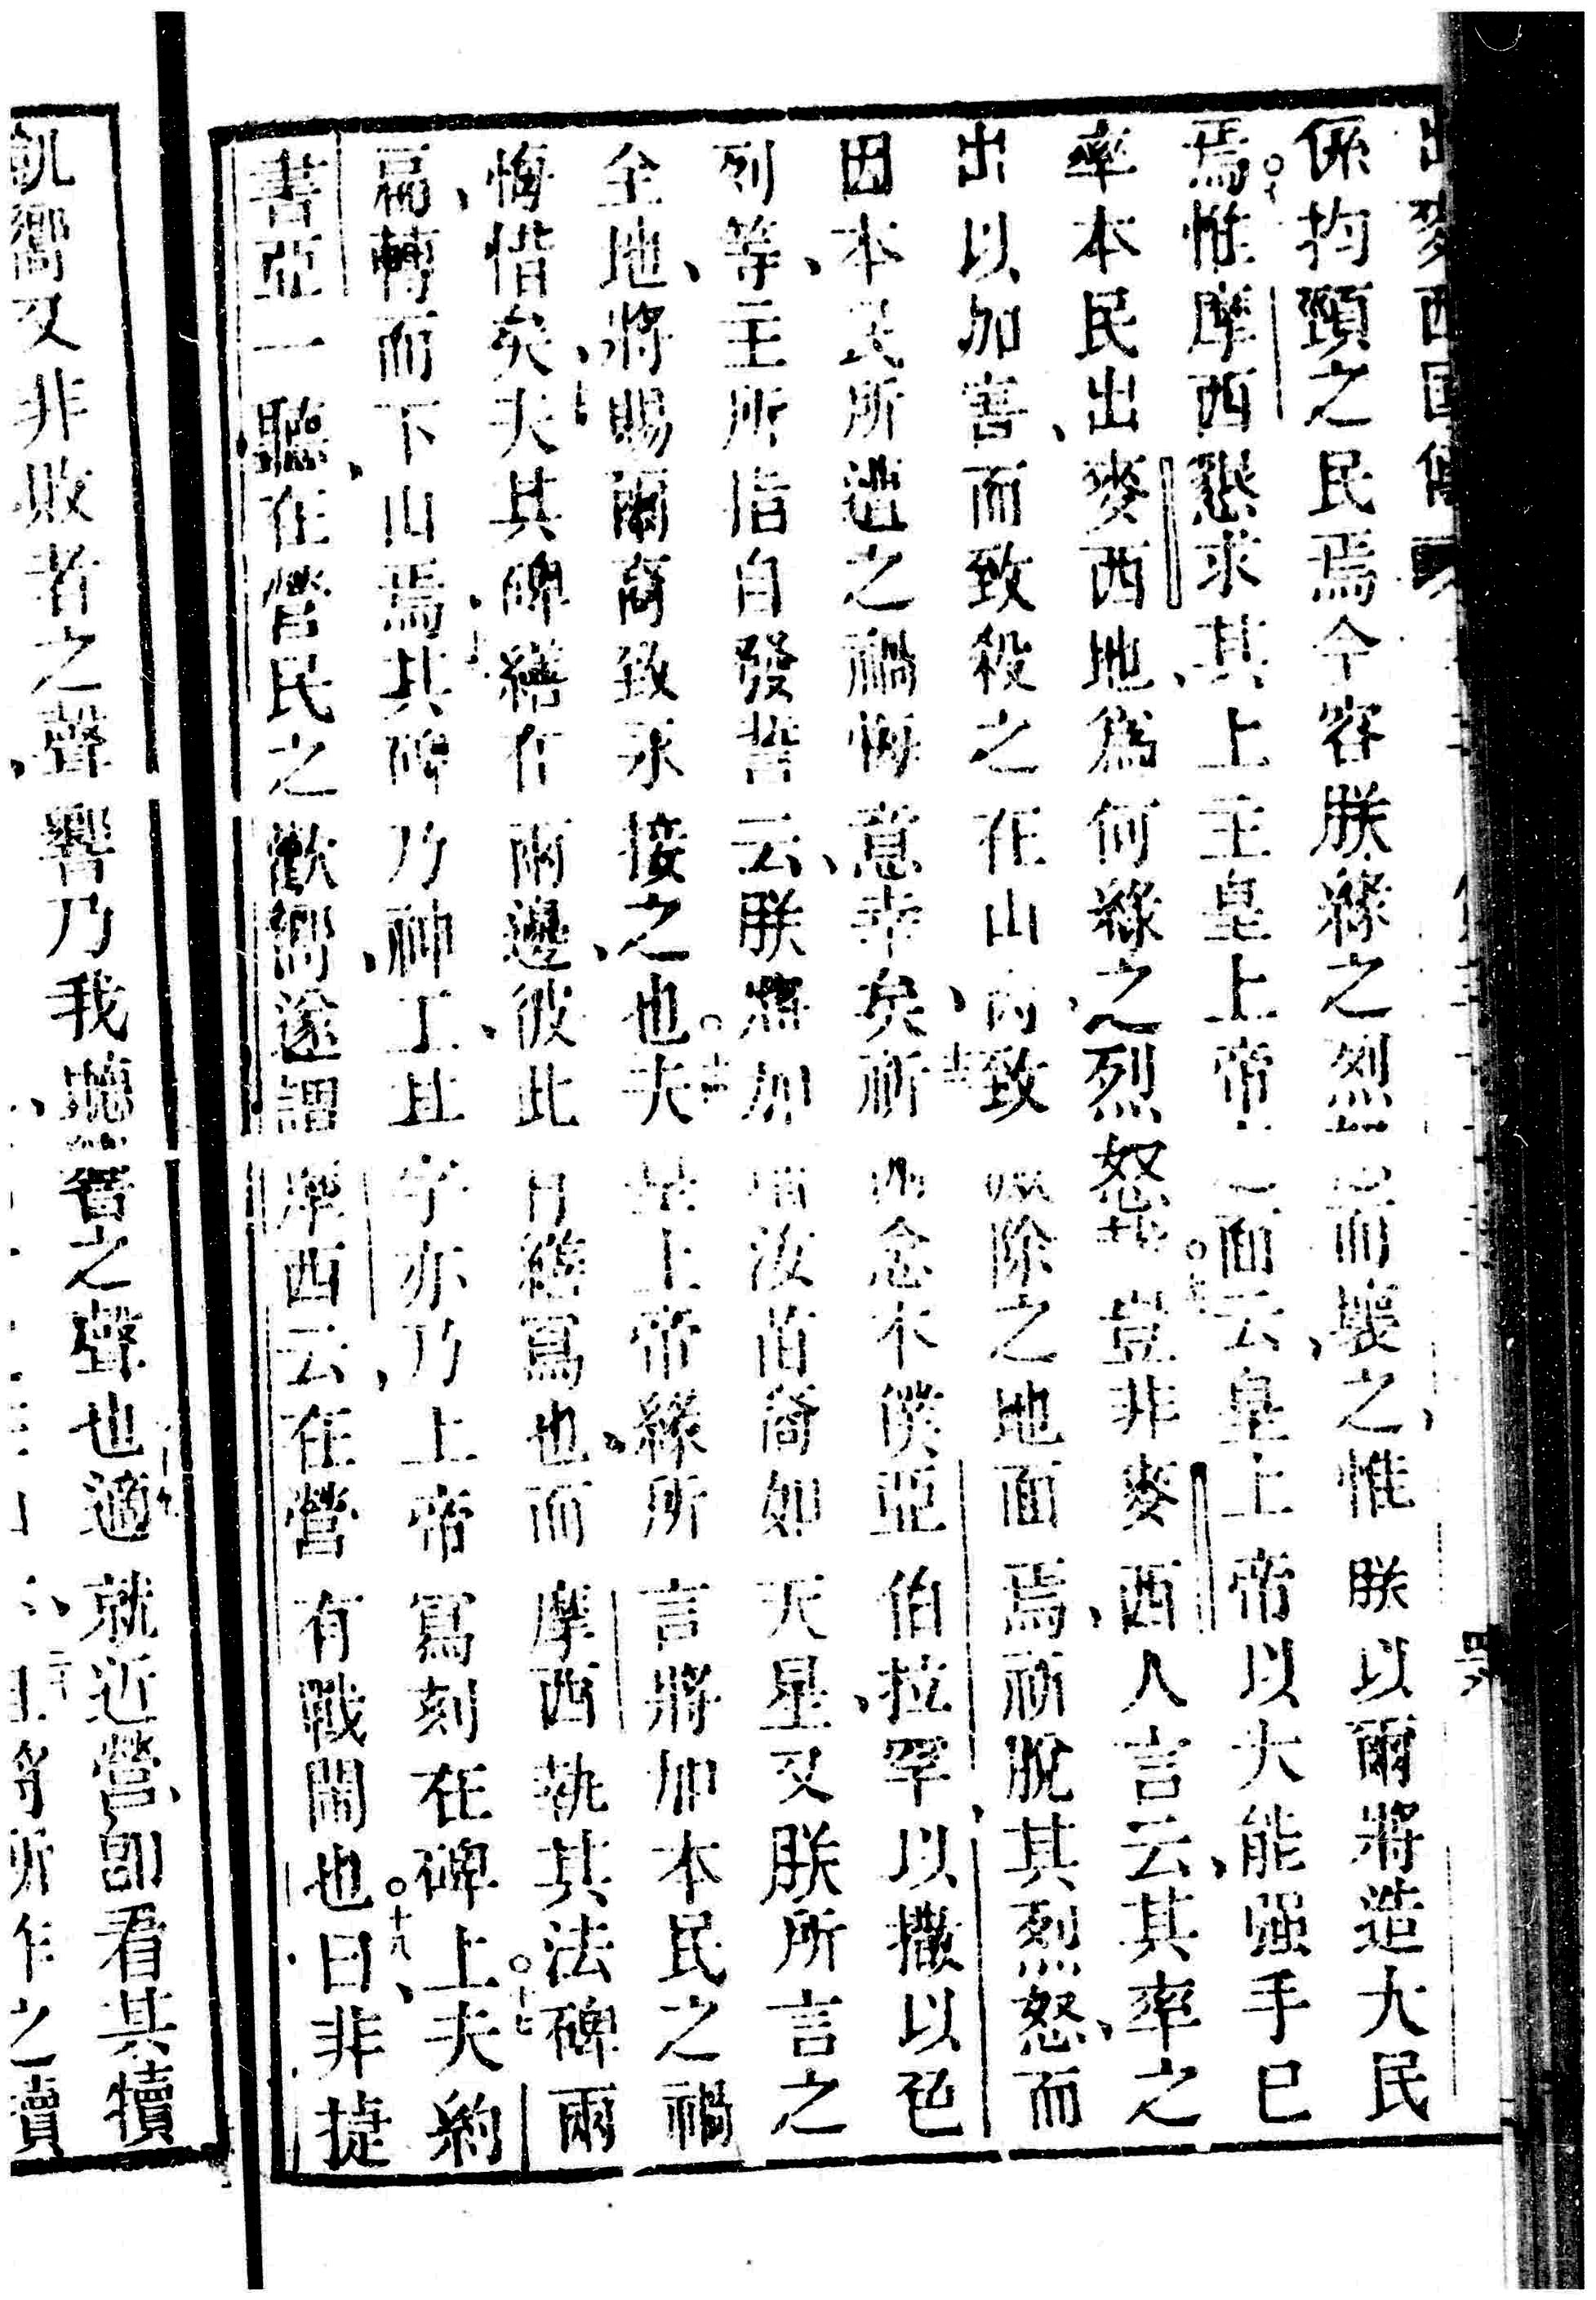 係拘頸之民焉今容朕綠之烈而襄之惟朕以爾將造大民
焉○惟摩西懇求其上主皇上帝之面云皇上帝以大能强手已
率本民出麥西地爲何綠之烈怒哉○豈非麥西人言云其率之
出以加害而致殺之在山內致除之地面焉祈脫其烈怒而
因本民所遭之禍悔意幸矣祈念本僕亞伯拉罕以撒以色
列等主所指自發誓云朕將加增汝苗裔如天星又朕所言之
全地將賜爾裔致永接之也○夫上帝緣所言將加本民之禍
悔惜矣夫其碑繕在兩邊彼此繕寫也而摩西執其法碑兩
扁轉而下山焉其碑乃神工且字亦乃上帝寫刻在碑上○十七夫約
書亞一聽在營民之歡嚮遂謂摩西云在營有戰鬧也○十八曰非捷
嚮又非敗者之聲響乃我聽之聲也適就近營卽看其犢